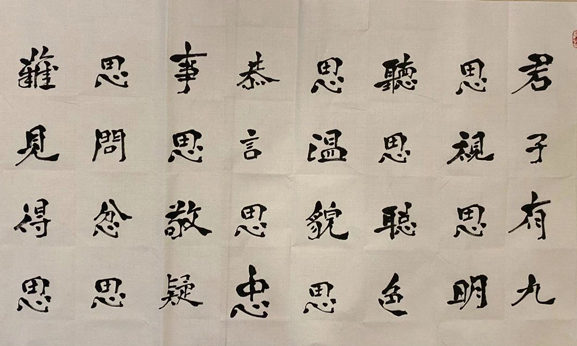 君子有九
思視思明
聽思聰色
思温貌思
恭言思忠
事思敬疑
思問忿思
難見得思